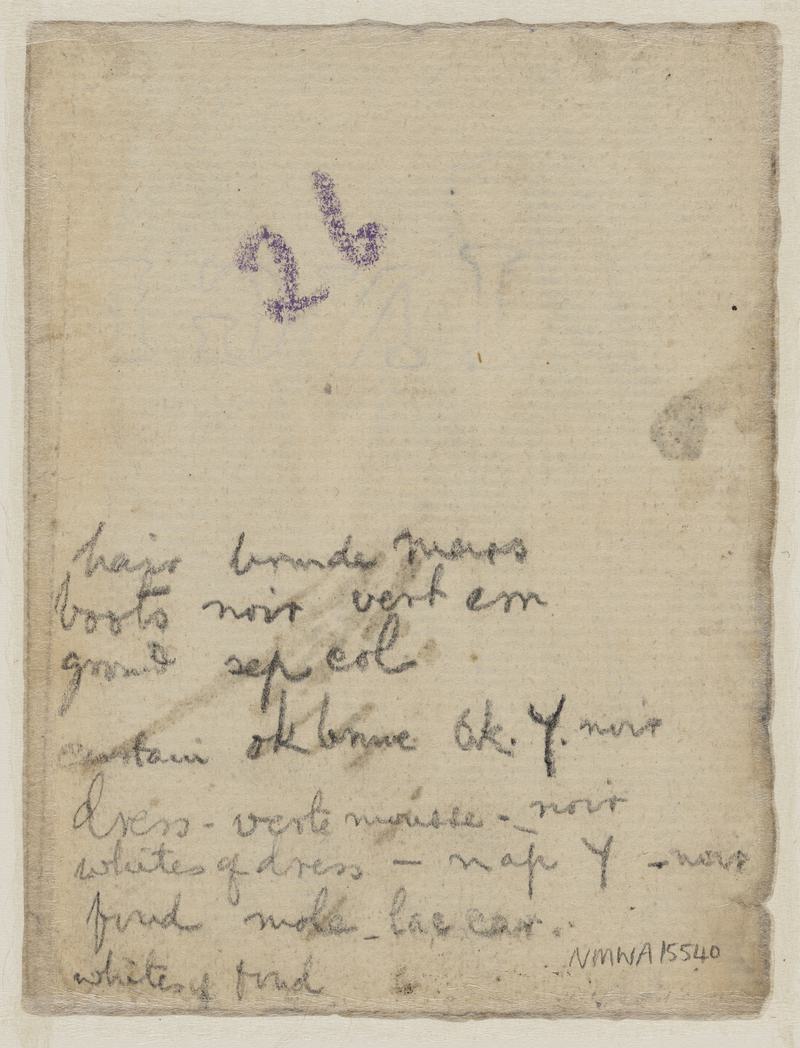 26
hair brunde mars
boots noir vert em
ground sep col
curtain ok brune Ok. Y. noir
dress - verte mousse - noir
whites of dress - nap Y - noir
fond mole - lac car.
NMWA 15540
whites of fond